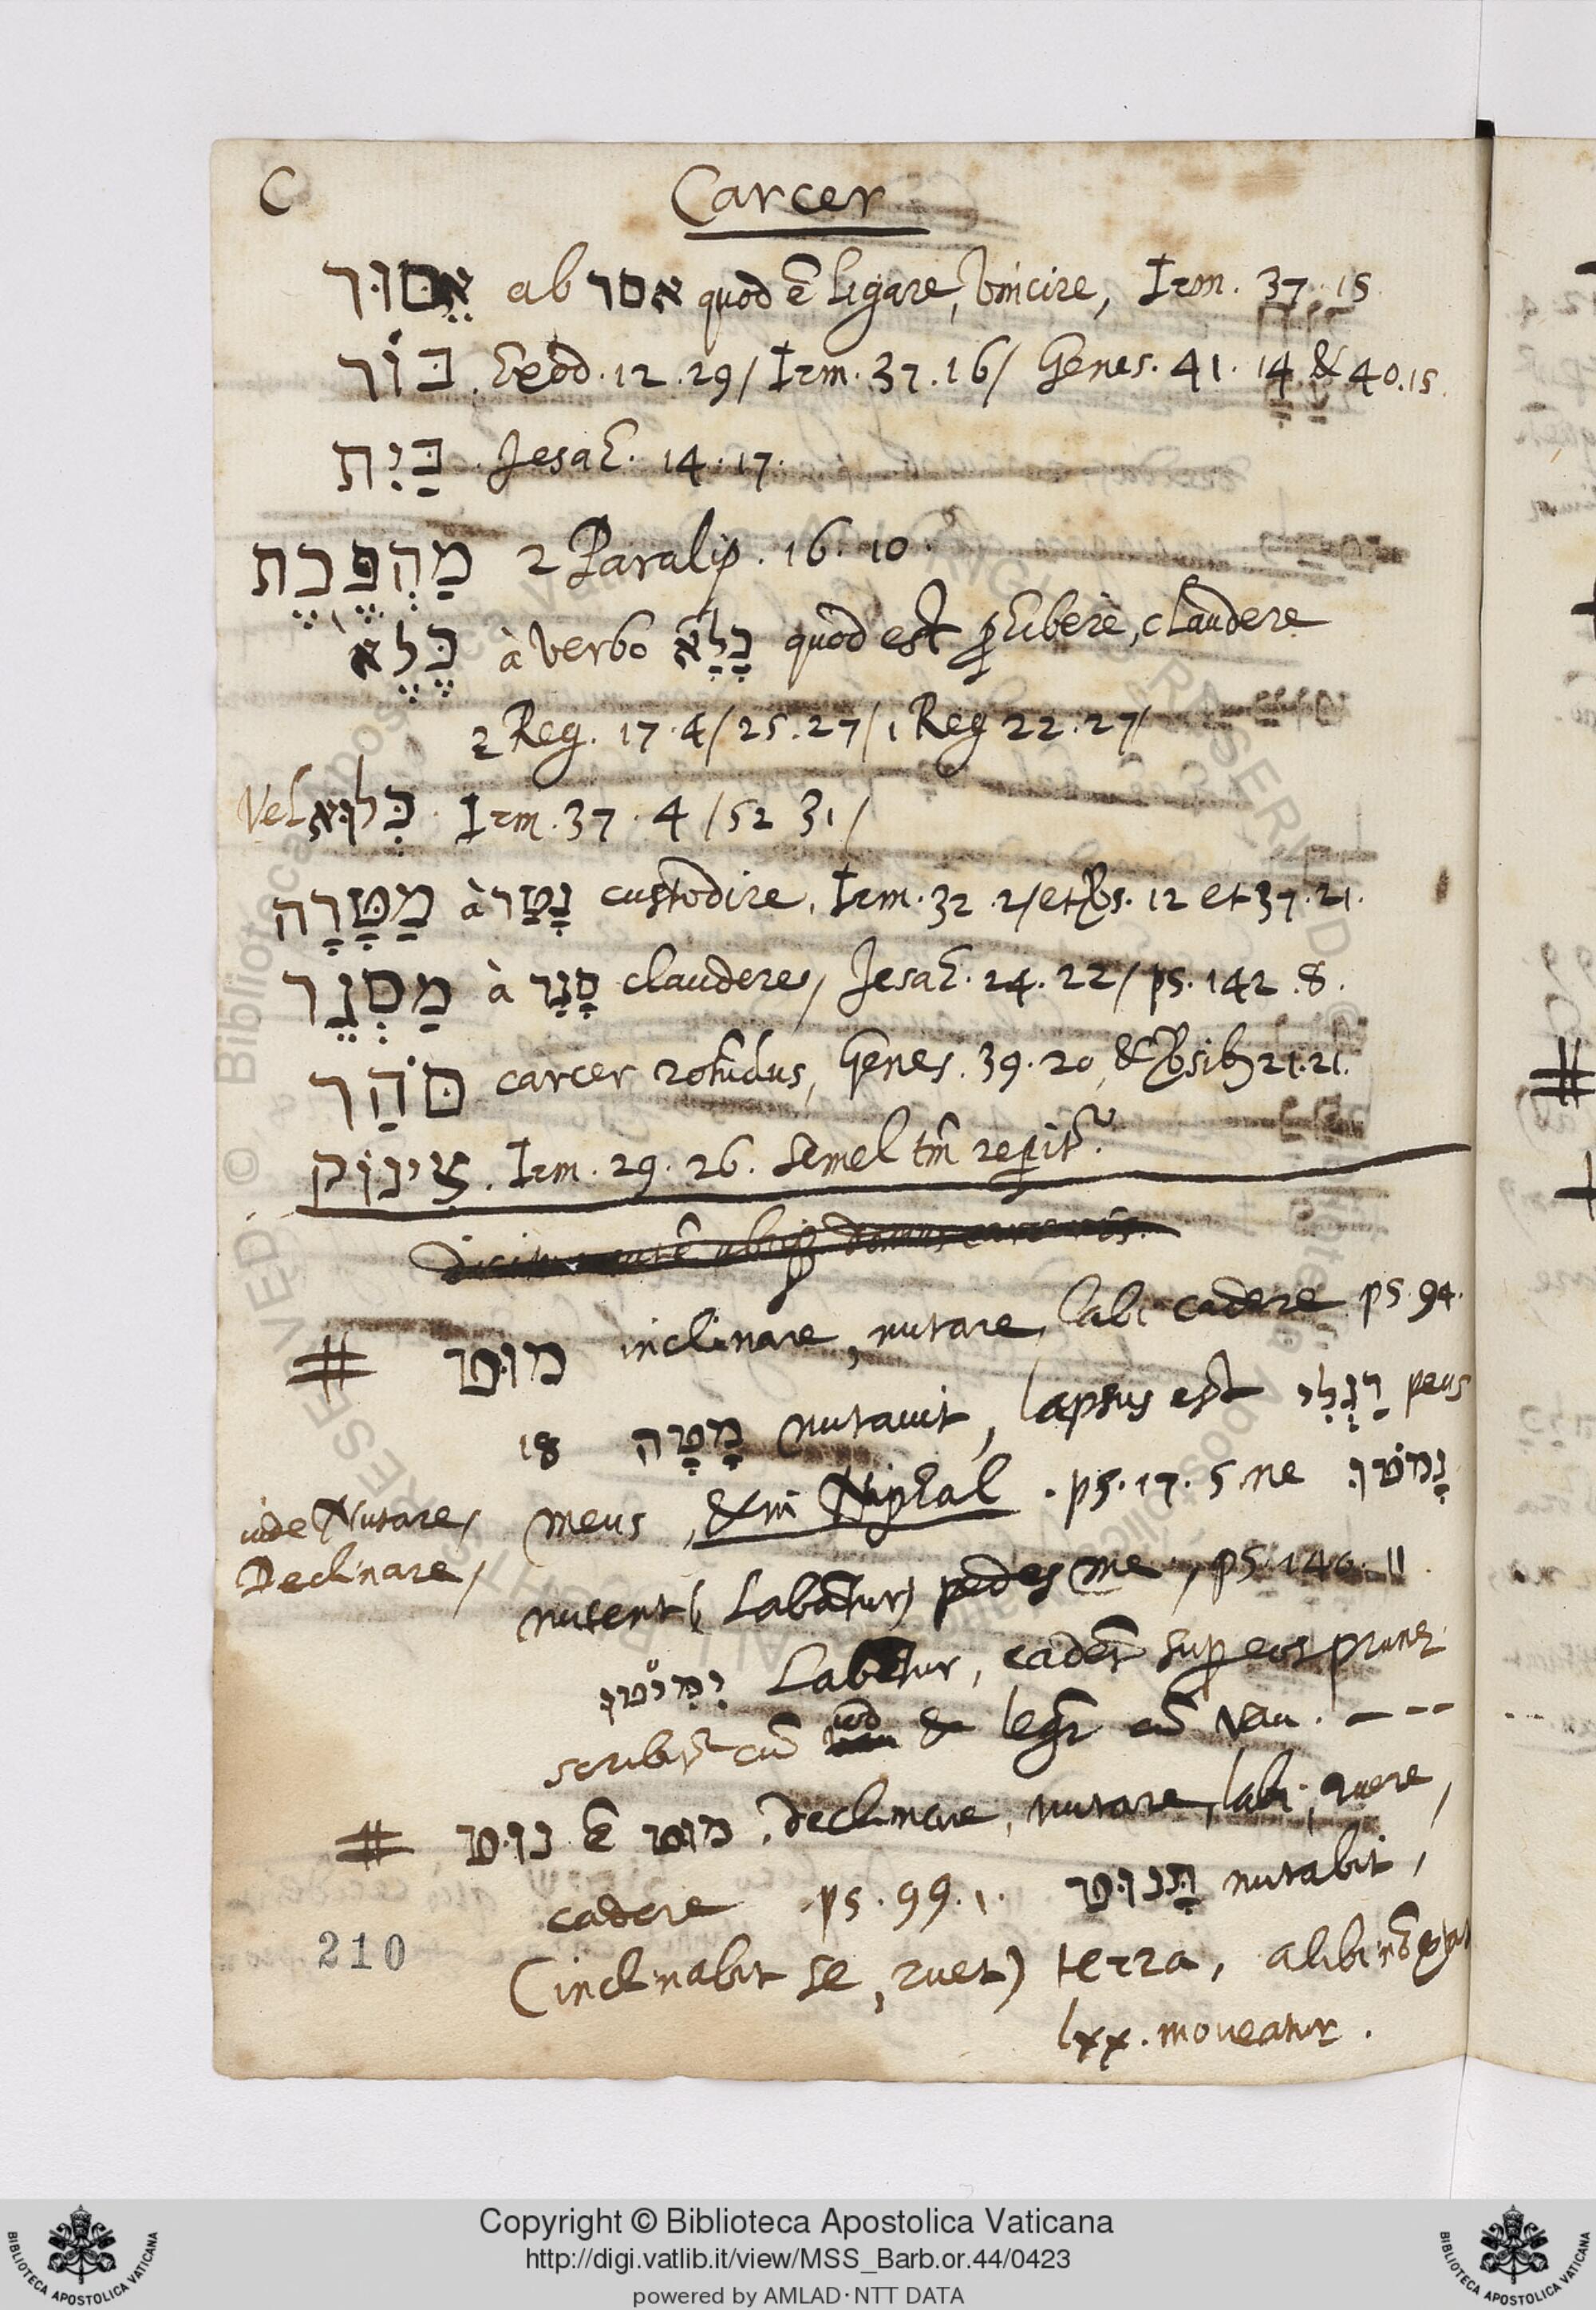 C Carcer
אֱסוּר ab אסר quod ē ligare, vincire, Irm. 37. 15
בּוֹר. Exod. 12. 29/ Irm. 37. 16/ Genes. 41. 14 & 40. 15.
בַּיִת. Jesaē. 14. 17.
מַהְפֶּכֶת 2 Paralip. 16. 10.
כֶּלֶא à verbo כָּלָא quod est claudere
2 Reg. 17. 4/ 25. 27/ 1 Reg 22. 27/
Vel כְּלוּא. Irm. 37. 4/ 52 31/
מַטָּרָה à נָטַר custodire, Irm. 32. 2/ et 12 et 37. 21.
מַסְגֵּר à סָגַר claudere, / Jesaē. 24. 22/ ps. 142. 8.
סֹהַר carcer rotūdus, Genes. 39. 20, & 21. 21.
צינוֹק. Irm. 29. 26. semel tm̄
# מוּט inclinare, nutare, labi cadere ps. 94.
18 מָטָה nutauit, lapsus est רַגְלִי peus
meus, & in Niphal. ps. 17. 5. ne נָמוֹטּוּ
uide Nutare,
Declinare,
nutent (labātur) pedes me, ps. 140. 11
יִמּיֹטוּ Labētur, cadēt sup eos prunę
cū iod & cū vau. - - -
# נוּט ē מוּט, declinare, nutare, labi, ruere,
cadere ps. 99. 1. תָּנוּט nutabit,
(inclinabit se, ruet) terra, alibi
lxx. moueatur.
210
© Biblioteca Apostolica Vaticana ALL RIGHTS RESERVED
Copyright © Biblioteca Apostolica Vaticana
http://digi.vatlib.it/view/MSS_Barb.or.44/0423
powered by AMLAD·NTT DATA
BIBLIOTECA APOSTOLICA VATICANA
BIBLIOTECA APOSTOLICA VATICANA